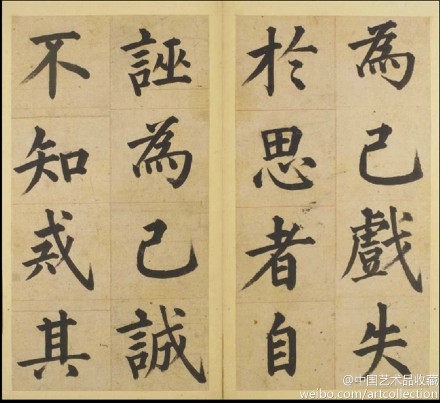 為己戲失
於思者自
誣為己誠
不知戒其
@中国艺术品收藏
weibo.com/artcollection